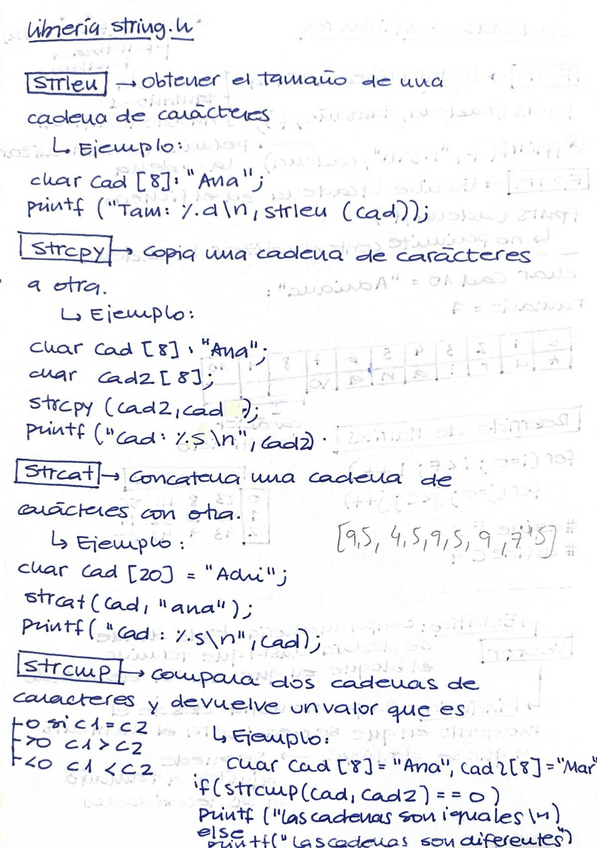 librería string.h
strlen → obtener el tamaño de una
cadena de carácteres
↳ Ejemplo:
char cad [8]: "Ana";
printf ("Tam: %.d\n, strlen (cad));
strcpy → copia una cadena de carácteres
a otra.
↳ Ejemplo:
char cad [8] , "Ana";
char cad2 [8];
strcpy (cad2, cad );
printf ("cad: %.s\n", cad2).
strcat → concatena una cadena de
carácteres con otra.
↳ Ejemplo:
[9,5, 4,5,9,5, 9, 7'5]
char cad [20] = "Adri";
strcat (cad, "ana");
printf ("cad: %.s\n", cad);
strcmp → compara dos cadenas de
caracteres y devuelve un valor que es
0 si c1 = c2
>0 c1 > c2
<0 c1 < c2
↳ Ejemplo:
char cad [8] = "Ana", cad2[8] = "Mar"
if (strcmp(cad, cad2) == 0)
printf ("las cadenas son iguales \n)
else
printf("las cadenas son diferentes")